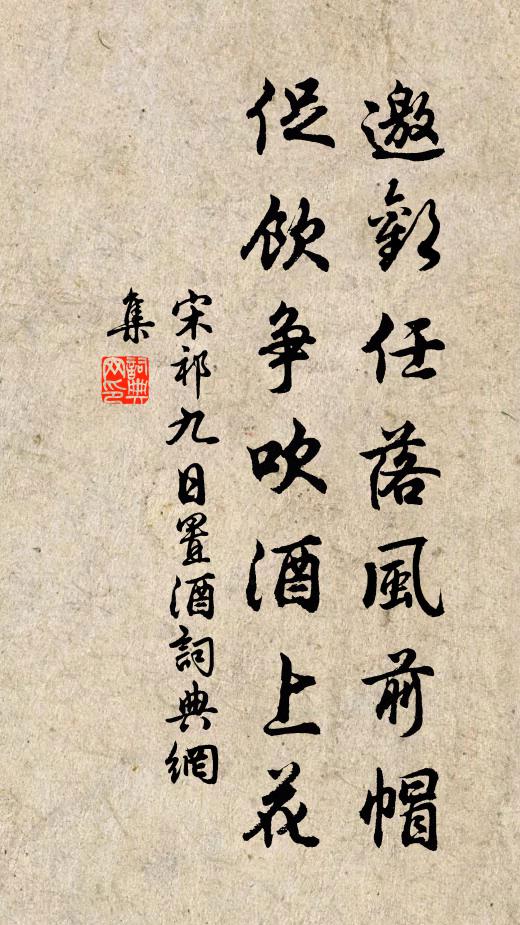 邀歡任落風前帽
促飲爭吹酒上花
宋祁九日置酒詞典網
集
詞典網印